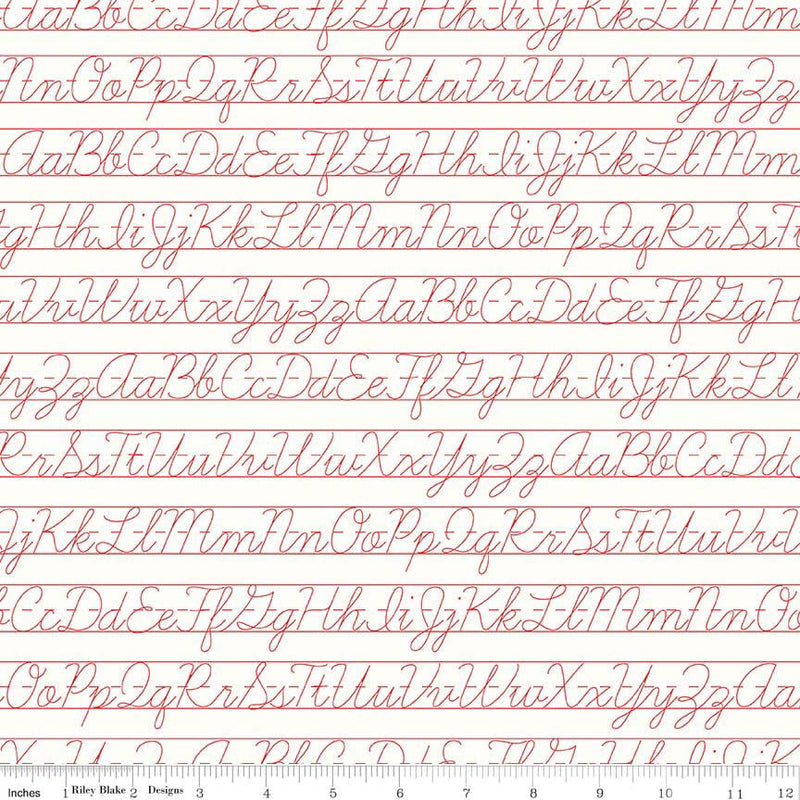 AaBbCcDdEeFfGgHhIiJjKkLlMm
NnOoPpQqRrSsTtUuVvWwXxYyZz
AaBbCcDdEeFfGgHhIiJjKkLlMm
gHhIiJjKkLlMmNnOoPpQqRrSsT
uVvWwXxYyZzAaBbCcDdEeFfGgH
YyZzAaBbCcDdEeFfGgHhIiJjKkLl
RrSsTtUuVvWwXxYyZzAaBbCcDd
JjKkLlMmNnOoPpQqRrSsTtUuVv
bCcDdEeFfGgHhIiJjKkLlMmNnOo
OoPpQqRrSsTtUuVvWwXxYyZzAa
Inches 1 Riley Blake 2 Designs 3 4 5 6 7 8 9 10 11 12